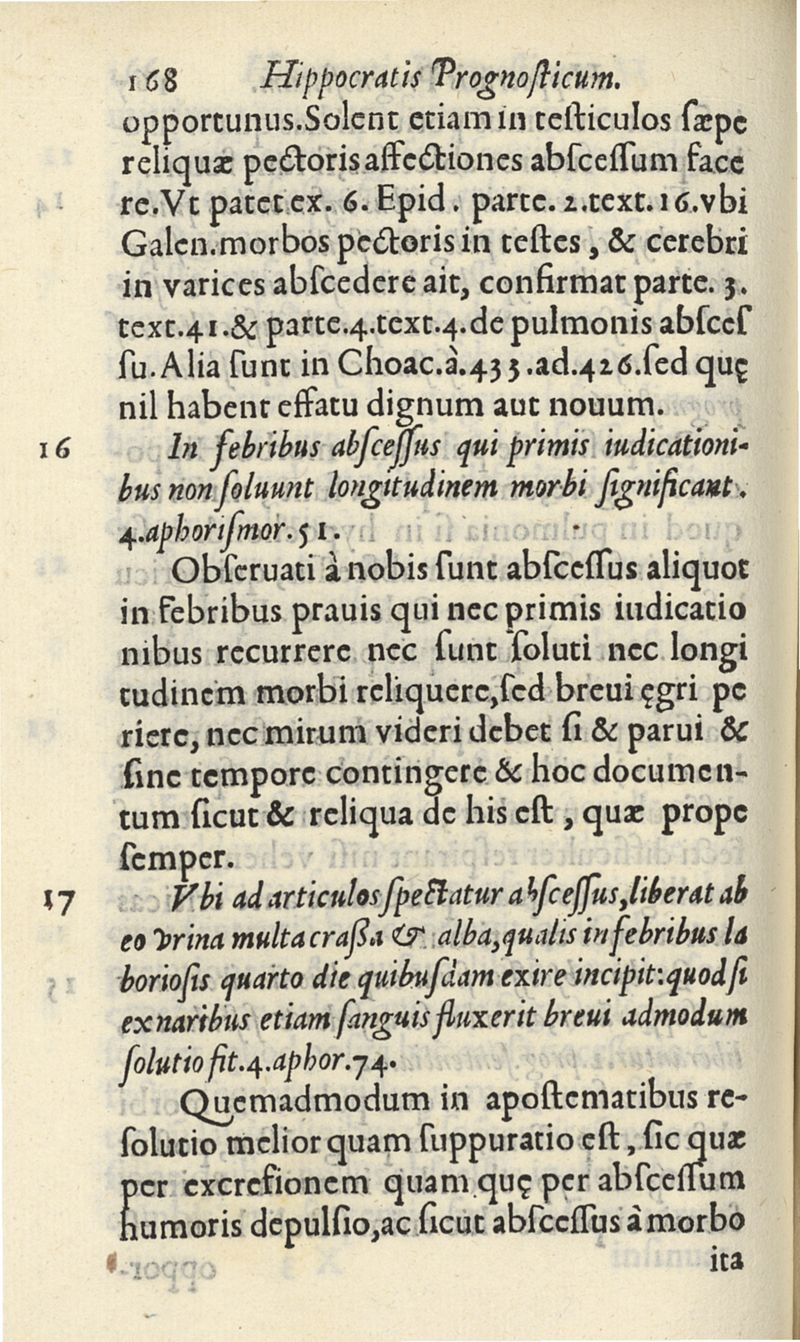 168 Hippocratis Prognoſticum.
opportunus.Solent etiam in teſticulos ſæpe
reliquæ pectoris affectiones abſceſſum face
re.Vt patet ex. 6. Epid. parte. 2.text.16.vbi
Galen.morbos pectoris in teſtes, & cerebri
in varices abſcedere ait, confirmat parte. 3.
text.41.& parte.4.text.4.de pulmonis abſceſ
ſu.Alia ſunt in Choac.à.433.ad.426.ſed quę
nil habent effatu dignum aut nouum.
16 In febribus abſceſſus qui primis iudicationi-
bus non ſoluunt longitudinem morbi ſignificant.
4.aphoriſmor.51.
Obſeruati à nobis ſunt abſceſſus aliquot
in febribus prauis qui nec primis iudicatio
nibus recurrere nec ſunt ſoluti nec longi
tudinem morbi reliquere,ſed breui ęgri pe
riere, nec mirum videri debet ſi & parui &
ſine tempore contingere & hoc documen-
tum ſicut & reliqua de his eſt, quæ prope
ſemper.
17 Vbi ad articulos ſpectatur abſceſſus,liberat ab
eo vrina multa craſſa & alba,qualis in febribus la
borioſis quarto die quibuſdam exire incipit:quod ſi
ex naribus etiam ſanguis fluxerit breui admodum
ſolutio fit.4.aphor.74.
Quemadmodum in apoſtematibus re-
ſolutio melior quam ſuppuratio eſt, ſic quæ
per excrefionem quam quę per abſceſſum
humoris depulſio,ac ſicut abſceſſus à morbo
ita